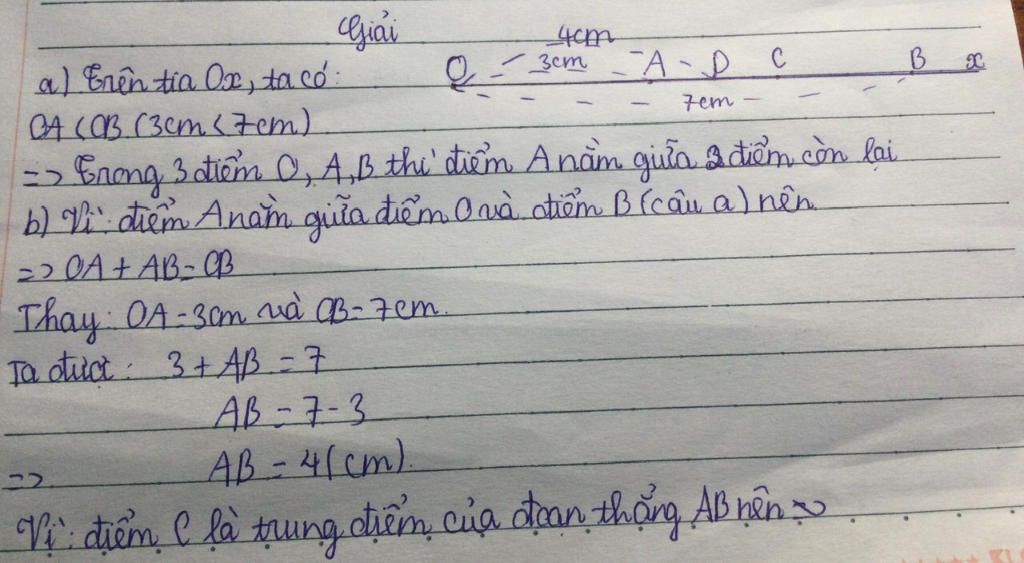 Giải
4cm
a) Trên tia Ox, ta có:
O 3cm A D C B x
7cm
OA < OB (3cm < 7cm)
=> Trong 3 điểm O, A, B thì điểm A nằm giữa 2 điểm còn lại
b) Vì: điểm A nằm giữa điểm O và điểm B (câu a) nên
=> OA + AB = OB
Thay: OA = 3cm và OB = 7cm.
Ta được: 3 + AB = 7
AB = 7 - 3
=> AB = 4 (cm).
Vì: điểm C là trung điểm của đoạn thẳng AB nên